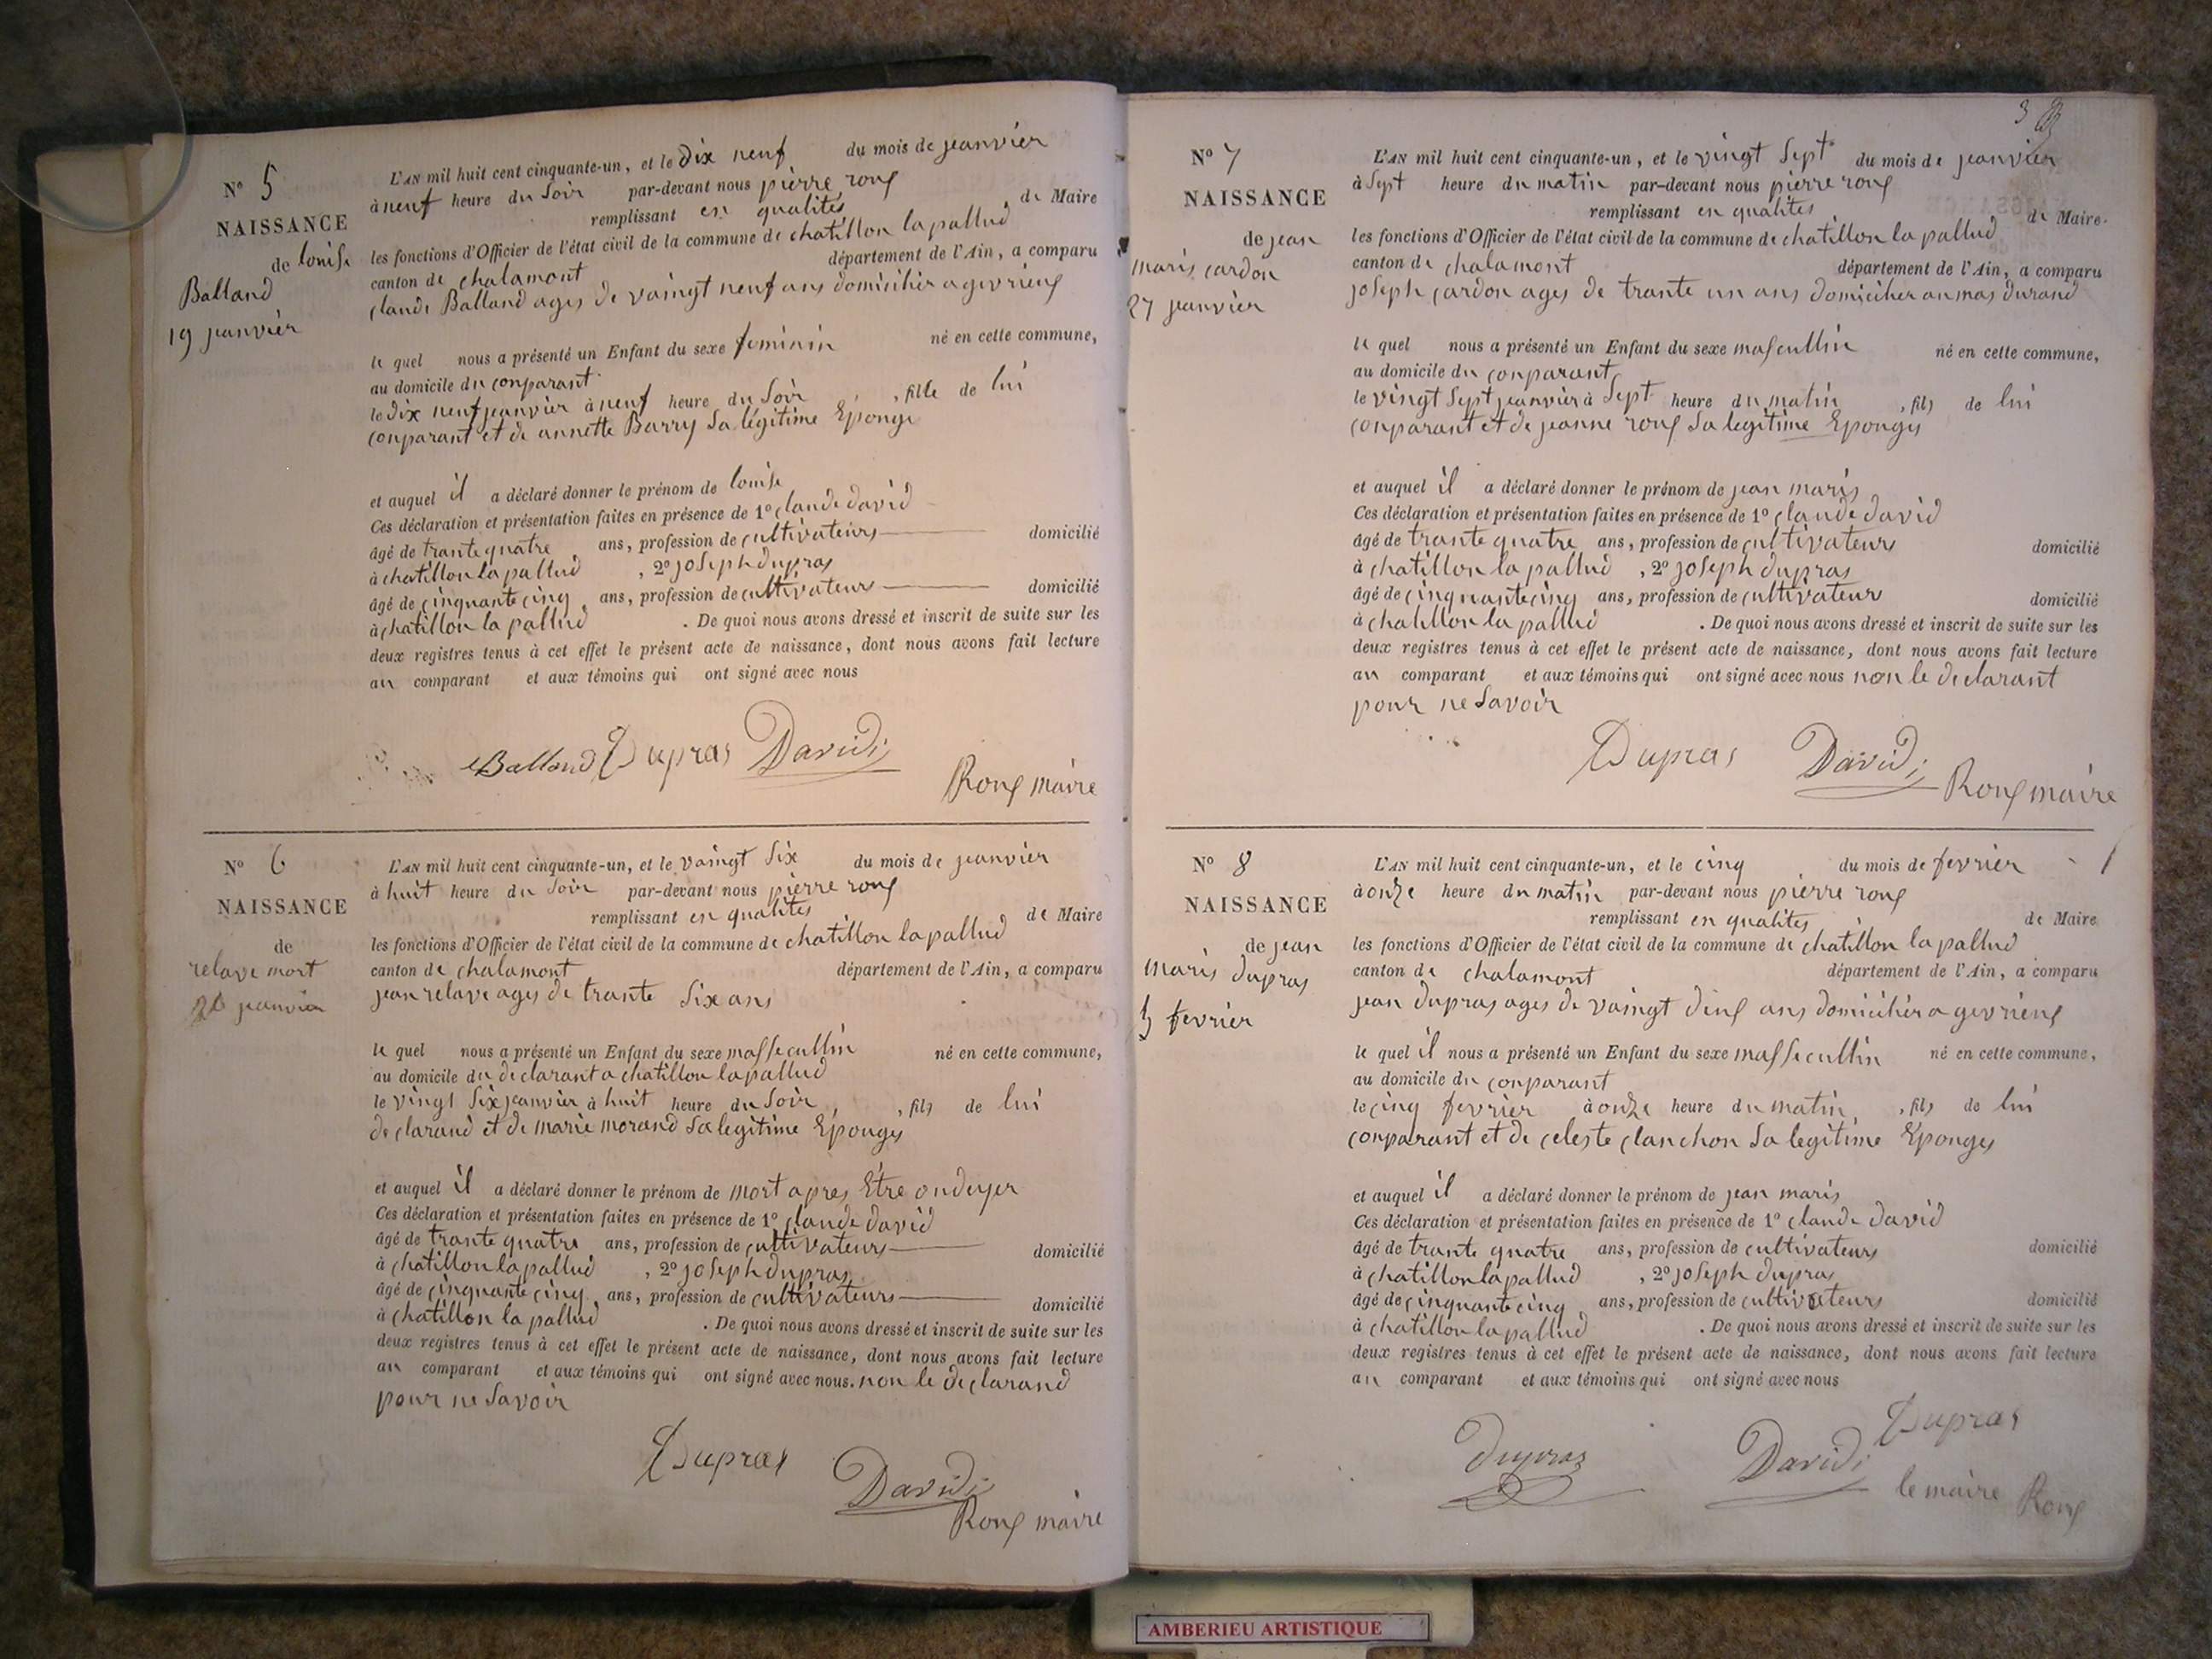 N° 5
NAISSANCE
de louise
Balland
19 jeanvier
L'AN mil huit cent cinquante-un, et le Dix neuf du mois de jeanvier
à neuf heure du Soir par-devant nous pierre rouf
remplissant en qualites de Maire
les fonctions d'Officier de l'état civil de la commune de chatillon la pallud
canton de chalamont département de l'Ain, a comparu
claude Balland ages de vaingt neuf ans domicilier a gevrieuf
le quel nous a présenté un Enfant du sexe feminin né en cette commune,
au domicile du conparant
le Dix neuf jeanvier à neuf heure du Soir, fille de lui
conparant et de annette Barry Sa légitime Epouge
et auquel il a déclaré donner le prénom de louise
Ces déclaration et présentation faites en présence de 1° claude david
âgé de trante quatre ans, profession de cultivateurs domicilié
à chatillon la pallud, 2° joseph dupras
âgé de cinquante cinq ans, profession de cultivateurs domicilié
à chatillon la pallud. De quoi nous avons dressé et inscrit de suite sur les
deux registres tenus à cet effet le présent acte de naissance, dont nous avons fait lecture
au comparant et aux témoins qui ont signé avec nous
Balland Dupras David
Rouf maire
N° 6
NAISSANCE
de
relave mort
26 jeanvier
L'AN mil huit cent cinquante-un, et le vaingt Six du mois de jeanvier
à huit heure du Soir par-devant nous pierre rouf
remplissant en qualites de Maire
les fonctions d'Officier de l'état civil de la commune de chatillon la pallud
canton de chalamont département de l'Ain, a comparu
jean relave ages de trante Six ans
le quel nous a présenté un Enfant du sexe massecullin né en cette commune,
au domicile du declarant a chatillon la pallud
le vingt Six jeanvier à huit heure du Soir, fils de lui
declarand et de marie morand Sa legitime Epouges
et auquel il a déclaré donner le prénom de mort apres Etre ondeyer
Ces déclaration et présentation faites en présence de 1° claude david
âgé de trante quatre ans, profession de cultivateurs domicilié
à chatillon la pallud, 2° joseph dupras
âgé de cinquante cinq ans, profession de cultivateurs domicilié
à chatillon la pallud. De quoi nous avons dressé et inscrit de suite sur les
deux registres tenus à cet effet le présent acte de naissance, dont nous avons fait lecture
au comparant et aux témoins qui ont signé avec nous. non le declarand
pour ne Savoir
Dupras David
Rouf maire
3
N° 7
NAISSANCE
de jean
maris cardon
27 jeanvier
L'AN mil huit cent cinquante-un, et le vingt Sept du mois de jeanvier
à Sept heure du matin par-devant nous pierre rouf
remplissant en qualites de Maire
les fonctions d'Officier de l'état civil de la commune de chatillon la pallud
canton de chalamont département de l'Ain, a comparu
joseph cardon ages de trante un ans domicilier au mas durand
le quel nous a présenté un Enfant du sexe mascullin né en cette commune,
au domicile du conparant
le vingt Sept jeanvier à Sept heure du matin, fils de lui
conparant et de jeanne rouf Sa legitime Epouges
et auquel il a déclaré donner le prénom de jean maris
Ces déclaration et présentation faites en présence de 1° claude david
âgé de trante quatre ans, profession de cultivateurs domicilié
à chatillon la pallud, 2° joseph dupras
âgé de cinquante cinq ans, profession de cultivateur domicilié
à chatillon la pallud. De quoi nous avons dressé et inscrit de suite sur les
deux registres tenus à cet effet le présent acte de naissance, dont nous avons fait lecture
au comparant et aux témoins qui ont signé avec nous non le declarant
pour ne Savoir
Dupras David
Rouf maire
N° 8
NAISSANCE
de jean
maris dupras
5 fevrier
L'AN mil huit cent cinquante-un, et le cinq du mois de fevrier
à onze heure du matin par-devant nous pierre rouf
remplissant en qualites de Maire
les fonctions d'Officier de l'état civil de la commune de chatillon la pallud
canton de chalamont département de l'Ain, a comparu
jean dupras ages de vaingt deuf ans domicilier a gevrieuf
le quel il nous a présenté un Enfant du sexe massecullin né en cette commune,
au domicile du conparant
le cinq fevrier à onze heure du matin, fils de lui
conparant et de celeste clanchon Sa legitime Epouges
et auquel il a déclaré donner le prénom de jean maris
Ces déclaration et présentation faites en présence de 1° claude david
âgé de trante quatre ans, profession de cultivateurs domicilié
à chatillon la pallud, 2° joseph dupras
âgé de cinquante cinq ans, profession de cultivateurs domicilié
à chatillon la pallud. De quoi nous avons dressé et inscrit de suite sur les
deux registres tenus à cet effet le présent acte de naissance, dont nous avons fait lecture
au comparant et aux témoins qui ont signé avec nous
Dupras David Dupras
le maire Rouf
AMBERIEU ARTISTIQUE